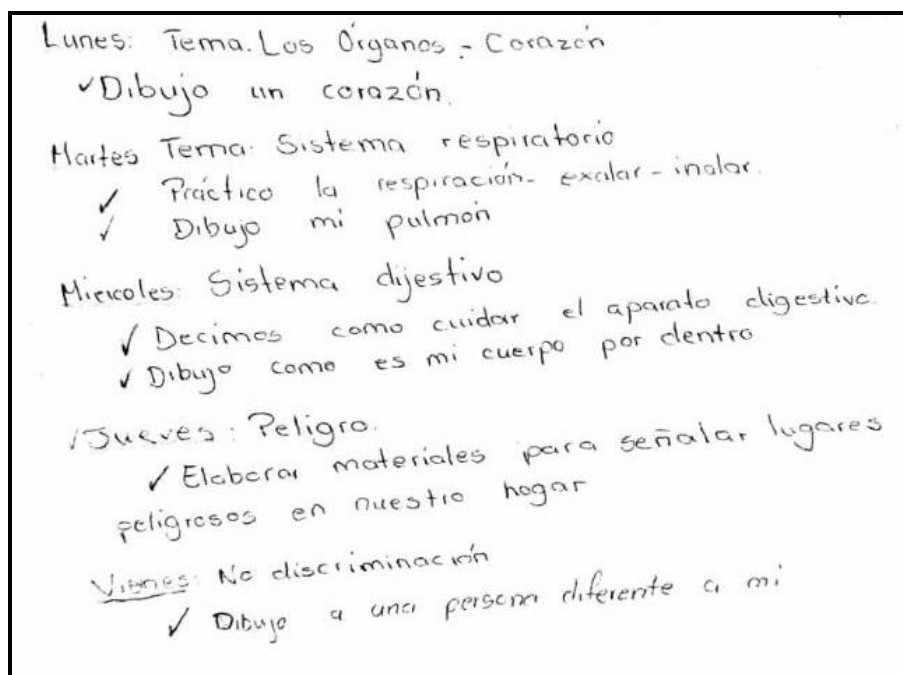 Lunes: Tema. Los Órganos - Corazón
✓Dibujo un corazón.
Martes Tema: Sistema respiratorio
✓ Práctico la respiración- exalar - inalar.
✓ Dibujo mi pulmón
Miercoles: Sistema dijestivo
✓ Decimos como cuidar el aparato digestivo.
✓ Dibujo como es mi cuerpo por dentro
✓Jueves: Peligro.
✓ Elaborar materiales para señalar lugares
peligrosos en nuestro hogar
Viernes: No discriminación
✓ Dibujo a una persona diferente a mi